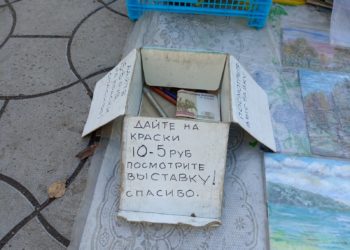 ДАЙТЕ НА
КРАСКИ
10-5 РУБ
ПОСМОТРИТЕ
ВЫСТАВКУ!
СПАСИБО.
ПОСМОТРИТЕ
ВЫСТАВКУ